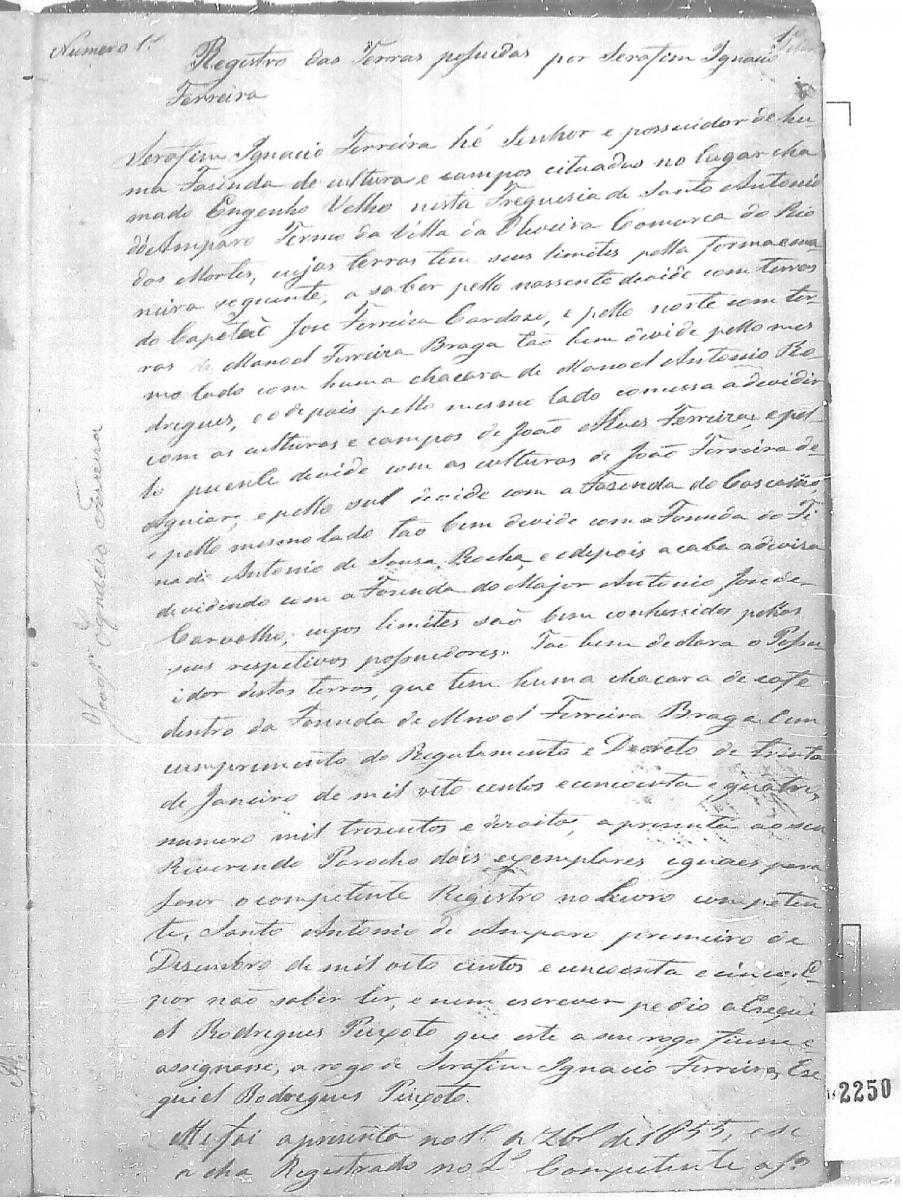 Numero 1º
1
Registro das Terras possuidas por Serafim Ignacio
Ferreira
Serafim Ignacio Ferreira hé Senhor e possuidor de hu-
ma Fasenda de cultura e campos cituadas no lugar cha
mado Engenho Velho nesta Freguesia de Santo Antonio
do Amparo Termo da Villa da Oliveira Comarca do Rio
das Mortes, cujas terras tem seus limites pella forma e ma
neira seguinte, a saber pello nassente devide com terras
do Capêtaõ José Ferreira Cardoso, e pello norte com ter-
ras de Manoel Ferreira Braga tão bem devide pello mes
mo lado com huma chacara de Manoel Antonio Ro-
drigues, e depois pello mesmo lado comessa a devidir
com as culturas e campos de João Alves Ferreira, e pel-
lo puente devide com as culturas de João Ferreira de
Aguiar, e pello sul devide com a Fasenda do
e pello mesmo lado tão bem devide com a Fasenda do Fi
nado Antonio de Sousa Rocha, e depois acaba a deviza
devidindo com a Fasenda do Major Antonio José de
Carvalho, cujos limites são bem conhessidos pellos
seus respetivos possuidores. Tão bem declara o Possu
idor destas terras, que tem huma chacara de café
dentro da Fasenda de Mnoel Ferreira Braga. Em
cumprimento do Regulamento e Decreto de trinta
de Janeiro de mil oito centos e cincoenta e quatro,
numero mil tresentos e dezoito, apresenta ao seu
Riverendo Parocho dois exemplares iguaes para
fazer o competente Registro no Livro competen
te, Santo Antonio do Amparo primeiro de
Dezembro de mil oito centos e cincoenta e cinco. E
por não saber ler, e nem escrever pedio a Esequi
el Rodrigues Peixoto que este a seu rogo fizesse e
assignasse, a rogo de Serafim Ignacio Ferreira, Ese
quiel Rodrigues Peixoto.
Me foi apresenta no 1º de de 1855, e se
acha Registrado no Lº Competente a fº
Ignacio Ferreira
2250